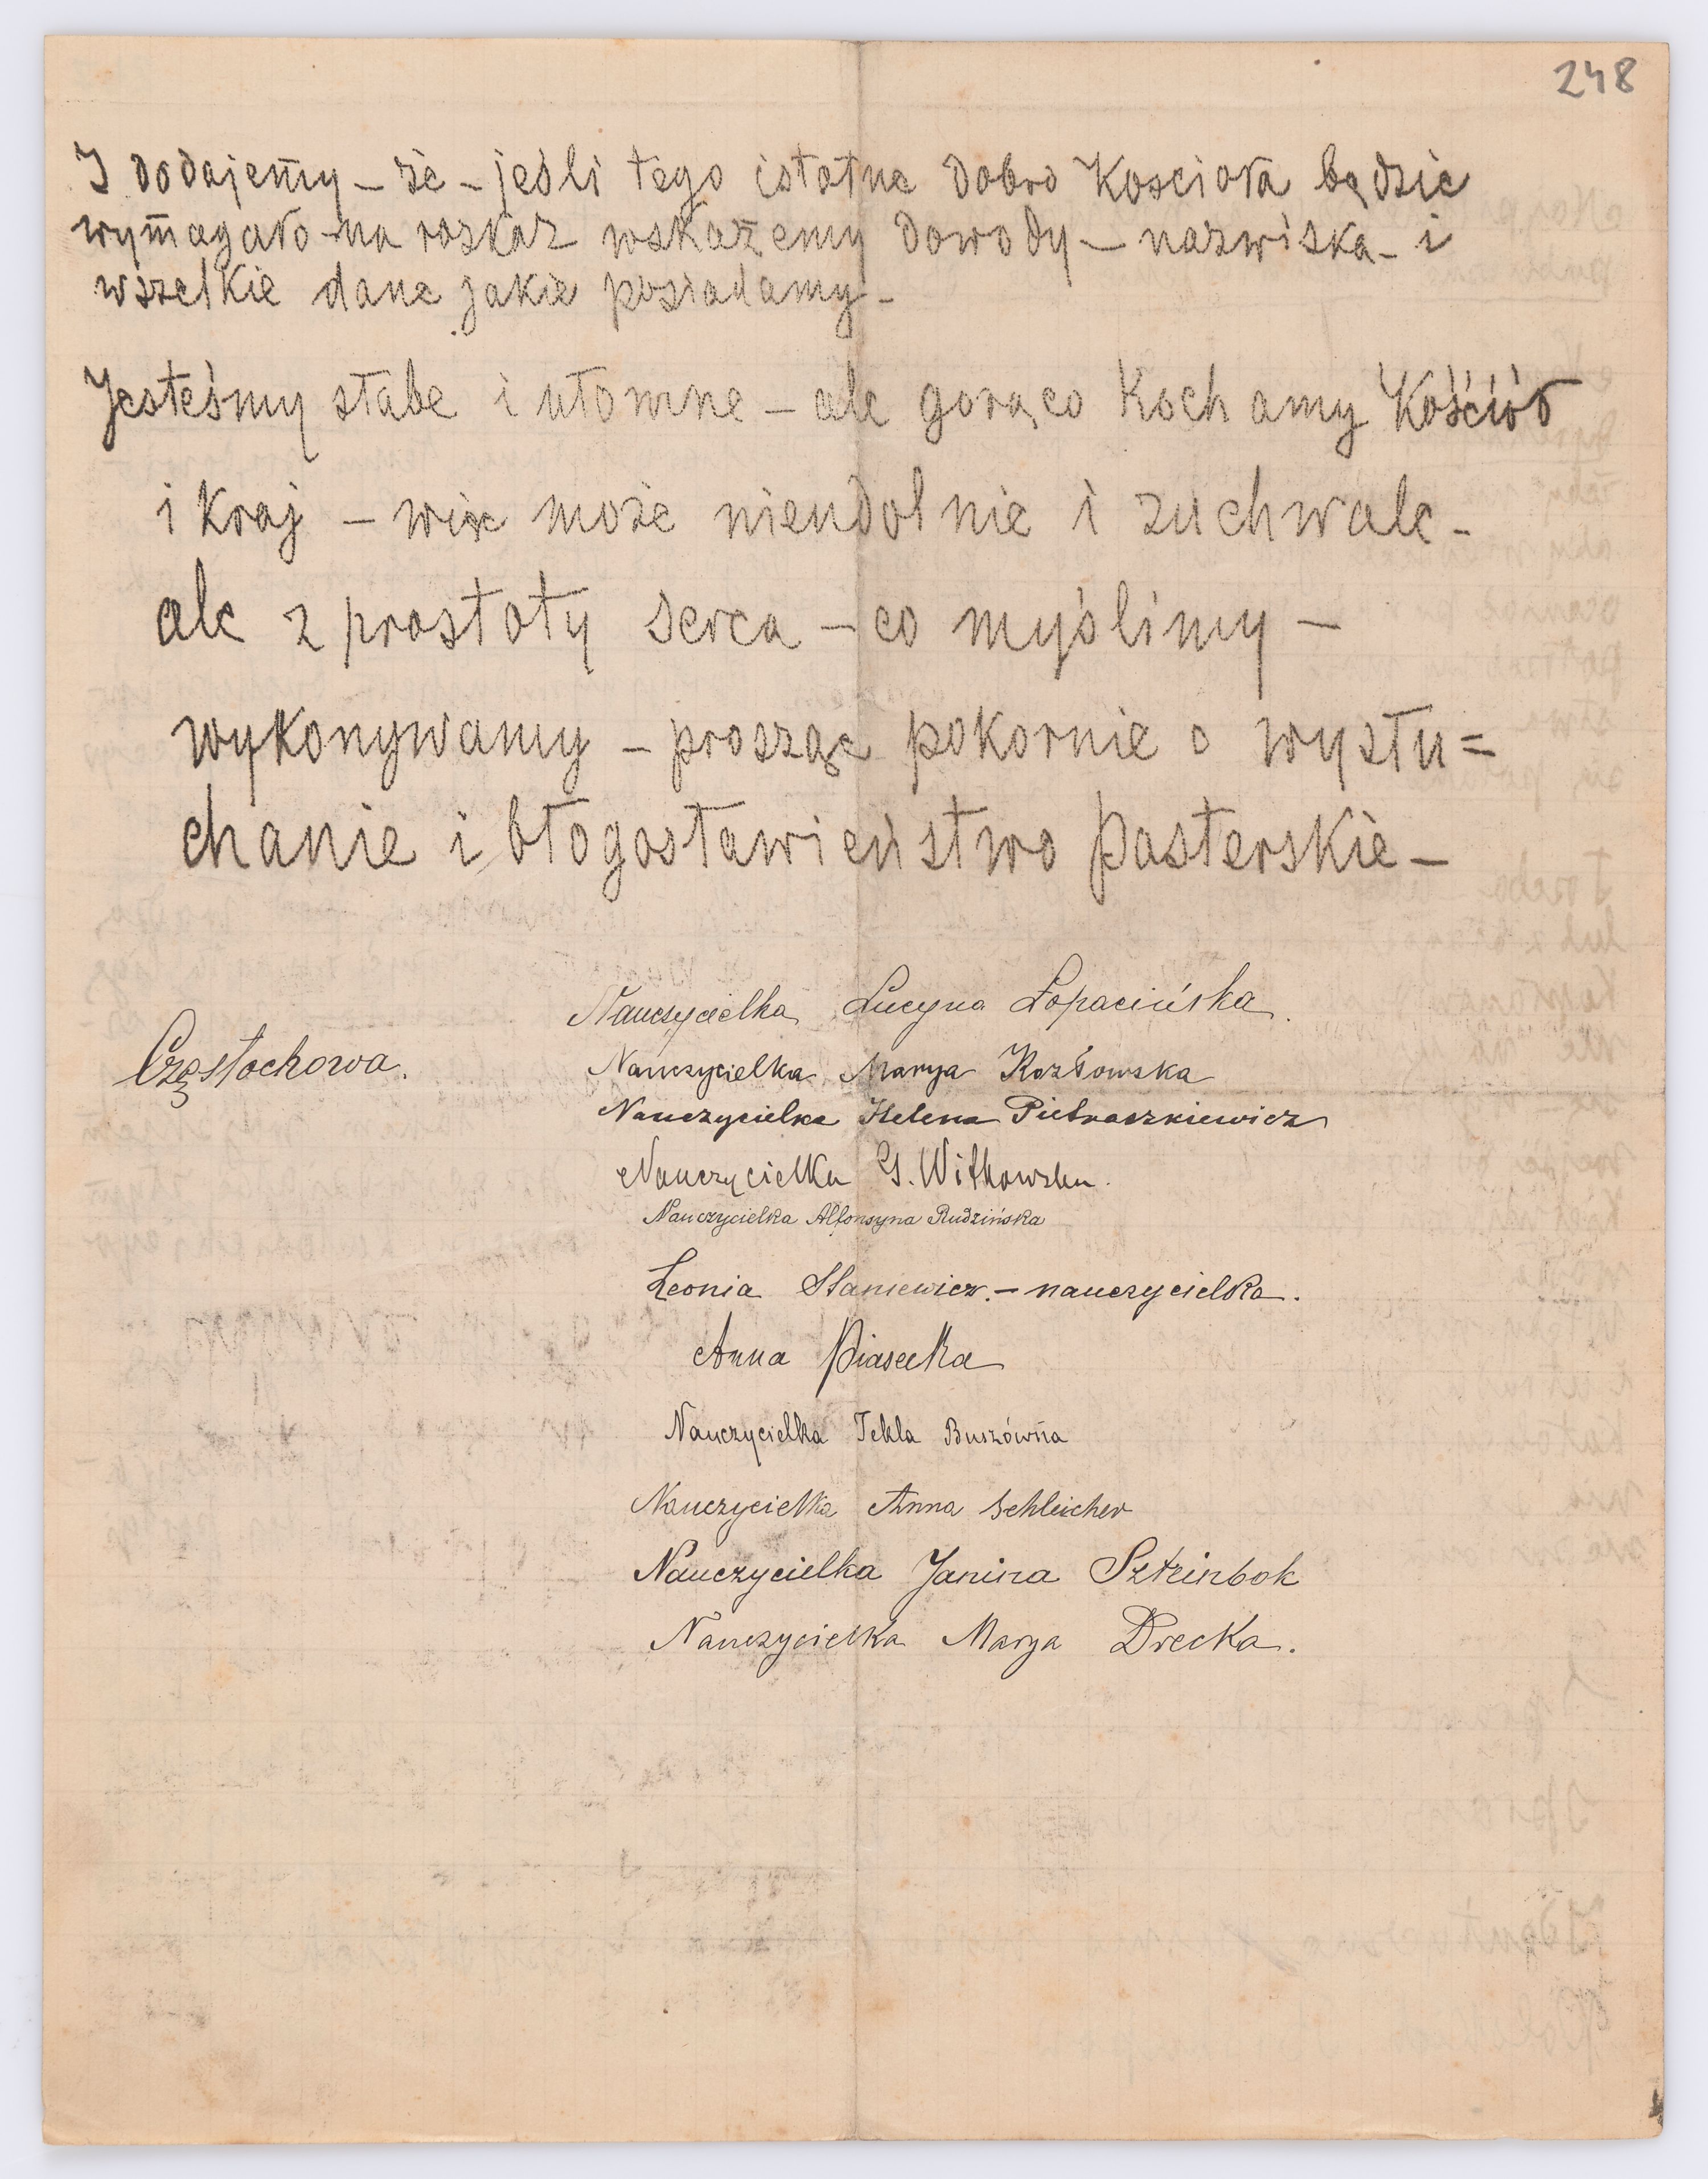 248
I dodajemy – że – jeśli tego istotne dobro Kościoła będzie
wymagało – na rozkaz wskażemy dowody – nazwiska – i
wszelkie dane jakie posiadamy –
Jesteśmy słabe i ułomne – ale gorąco Kochamy Kośćiół
i Kraj – więc może nieudolnie i zuchwale –
ale z prostoty serca – co myślimy –
wykonywamy – prosząc pokornie o wysłu=
chanie i błogosławieństwo Pasterskie –
Nauczycielka Lucyna Łopacińska.
Częstochowa.
Nauczycielka Marya Kozłowska
Nauczycielka Helena Pietraszkiewicz
Nauczycielka G. Witkowska.
Nauczycielka Alfonsyna Rudzińska
Leonia Staniewicz. – nauczycielka.
Anna Piasecka
Nauczycielka Tekla Buszówna
Nauczycielka Anna Schleicher
Nauczycielka Janina Szteinbok
Nauczycielka Marya Drecka.